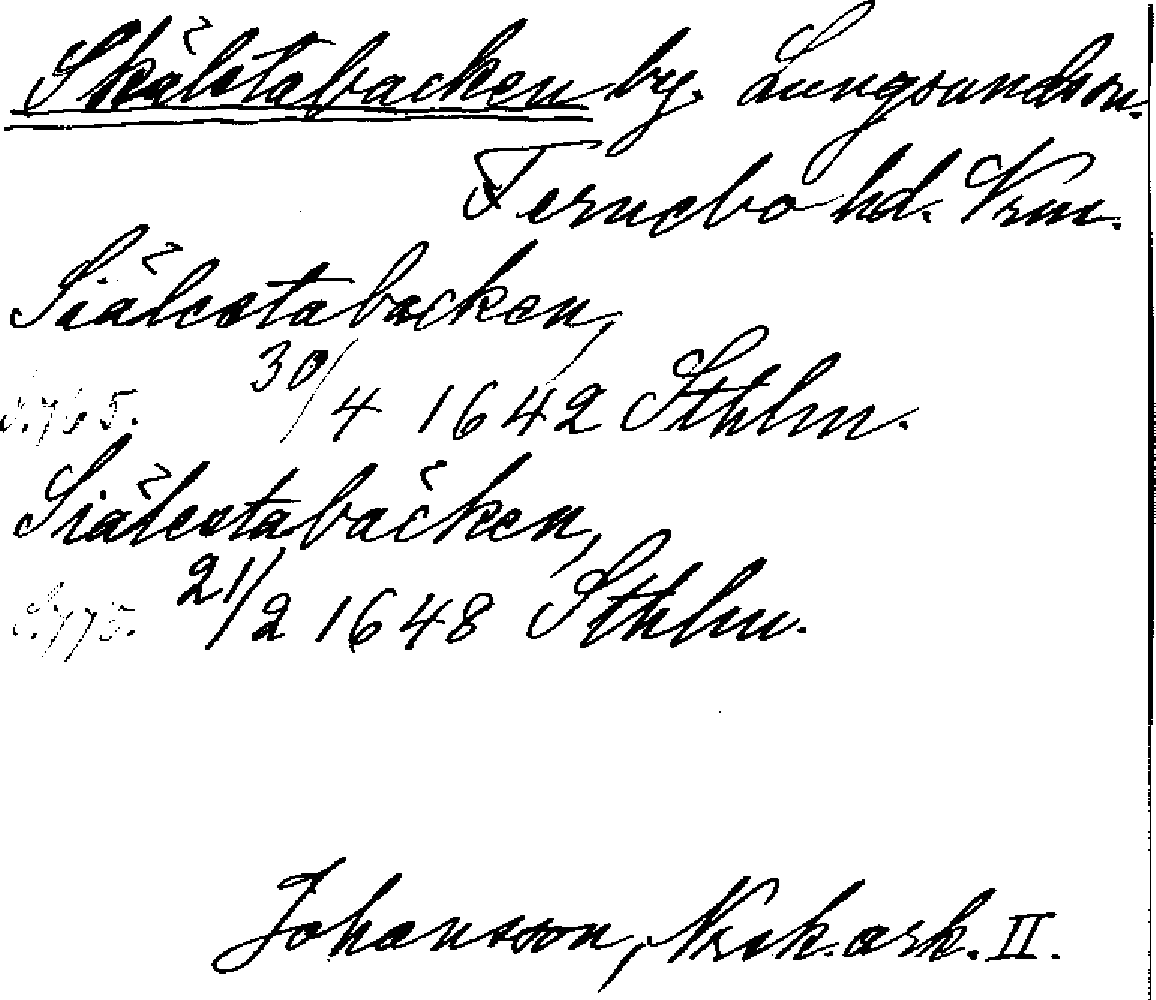 Skälstabacken by. Lungsundsson.
Fernebo hd. Vrm.
Siälestabacken,
S. 765. 30/4 1642 Sthlm.
Siälestabäcken,
S. 775. 21/2 1648 Sthlm.
Johansson, Krik.ark. II.